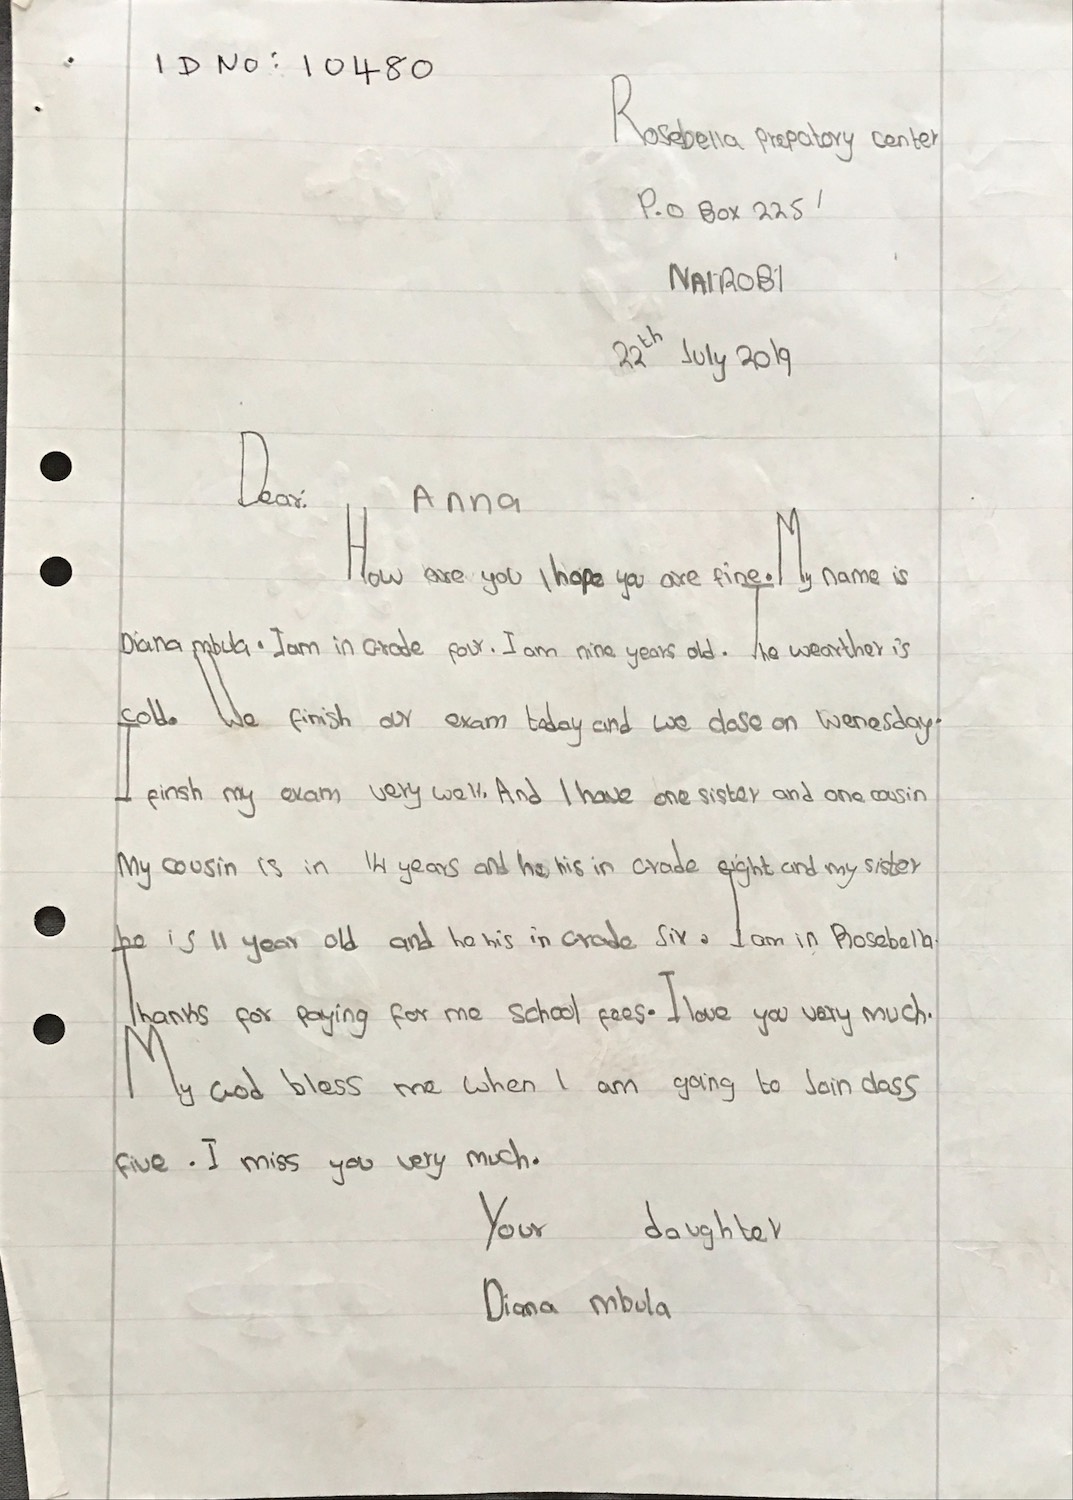 ID NO: 10480
Rosebella prepatory center
P.O Box 225
NAIROBI
22th July 2019
Dear. Anna
How are you I hope you are fine. My name is
Diana mbula. I am in Grade four. I am nine years old. The wearther is
cold. We finish our exam today and we close on Wenesday.
I finsh my exam very well. And I have one sister and one cousin
My cousin is in 14 years and he his in Grade eight and my sister
he is 11 year old and he his in Grade Six. I am in Rosebella.
Thanks for paying for me school fees. I love you very much.
My God bless me when I am going to Join class
five. I miss you very much.
Your daughter
Diana mbula